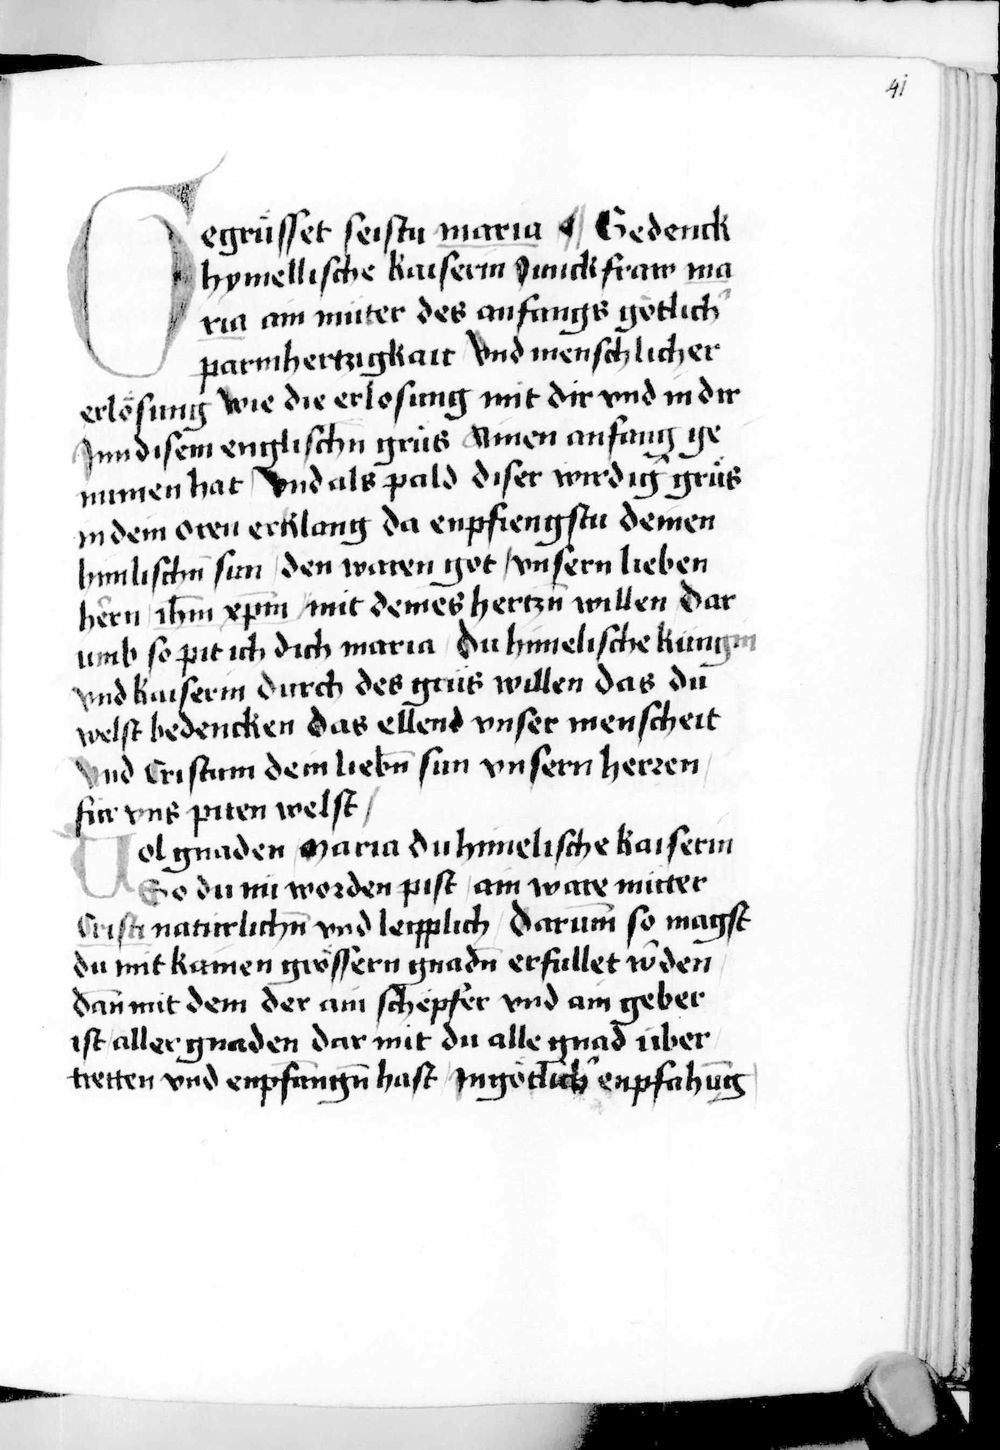 41
Gegrüsset seistu maria ¶ Gedenck
hymellische kaiserin Junckfraw ma
ria ain müter des anfangs götlich̛
parmhertzigkait Vnd menschlicher
erlösung wie die erlosung mit dir vnd in dir
Inn disem englischn̄ grüs Ainen anfang ge
numen hat / Vnd als pald diser wirdig̛ grüs
in dein oren erklang da enpfiengstu deinen
himlischn̄ sun / den waren got / vnsern lieben
hern̄ / ih̄m xp̄m / mit deines hertzn̄ willen / Dar
umb so pit ich dich maria / Du himelische küngin
vnd kaiserin durch des grüs willen das du
welst bedencken das ellend vnser menscheit
Vnd Cristum dein liebn̄ sun vnsern herren /
für vns piten welst /
Vol gnaden / Maria du himelische kaiserin
So du nu worden pist / ain ware mütter
Cristi natürlichn̄ vnd leipplich / darum̄ so magst
du mit kainen grössern gnadn̄ erfullet w̄den /
dan̄ mit dem der ain schepfer vnd ain geber
ist / aller gnaden dar mit du alle gnad über /
tretten vnd enpfangn̄ hast / In götlich̛ enpfahūg /